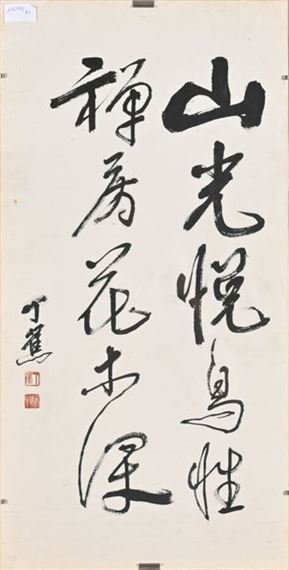 山光悦鳥性
禅房花木深
丁蕉